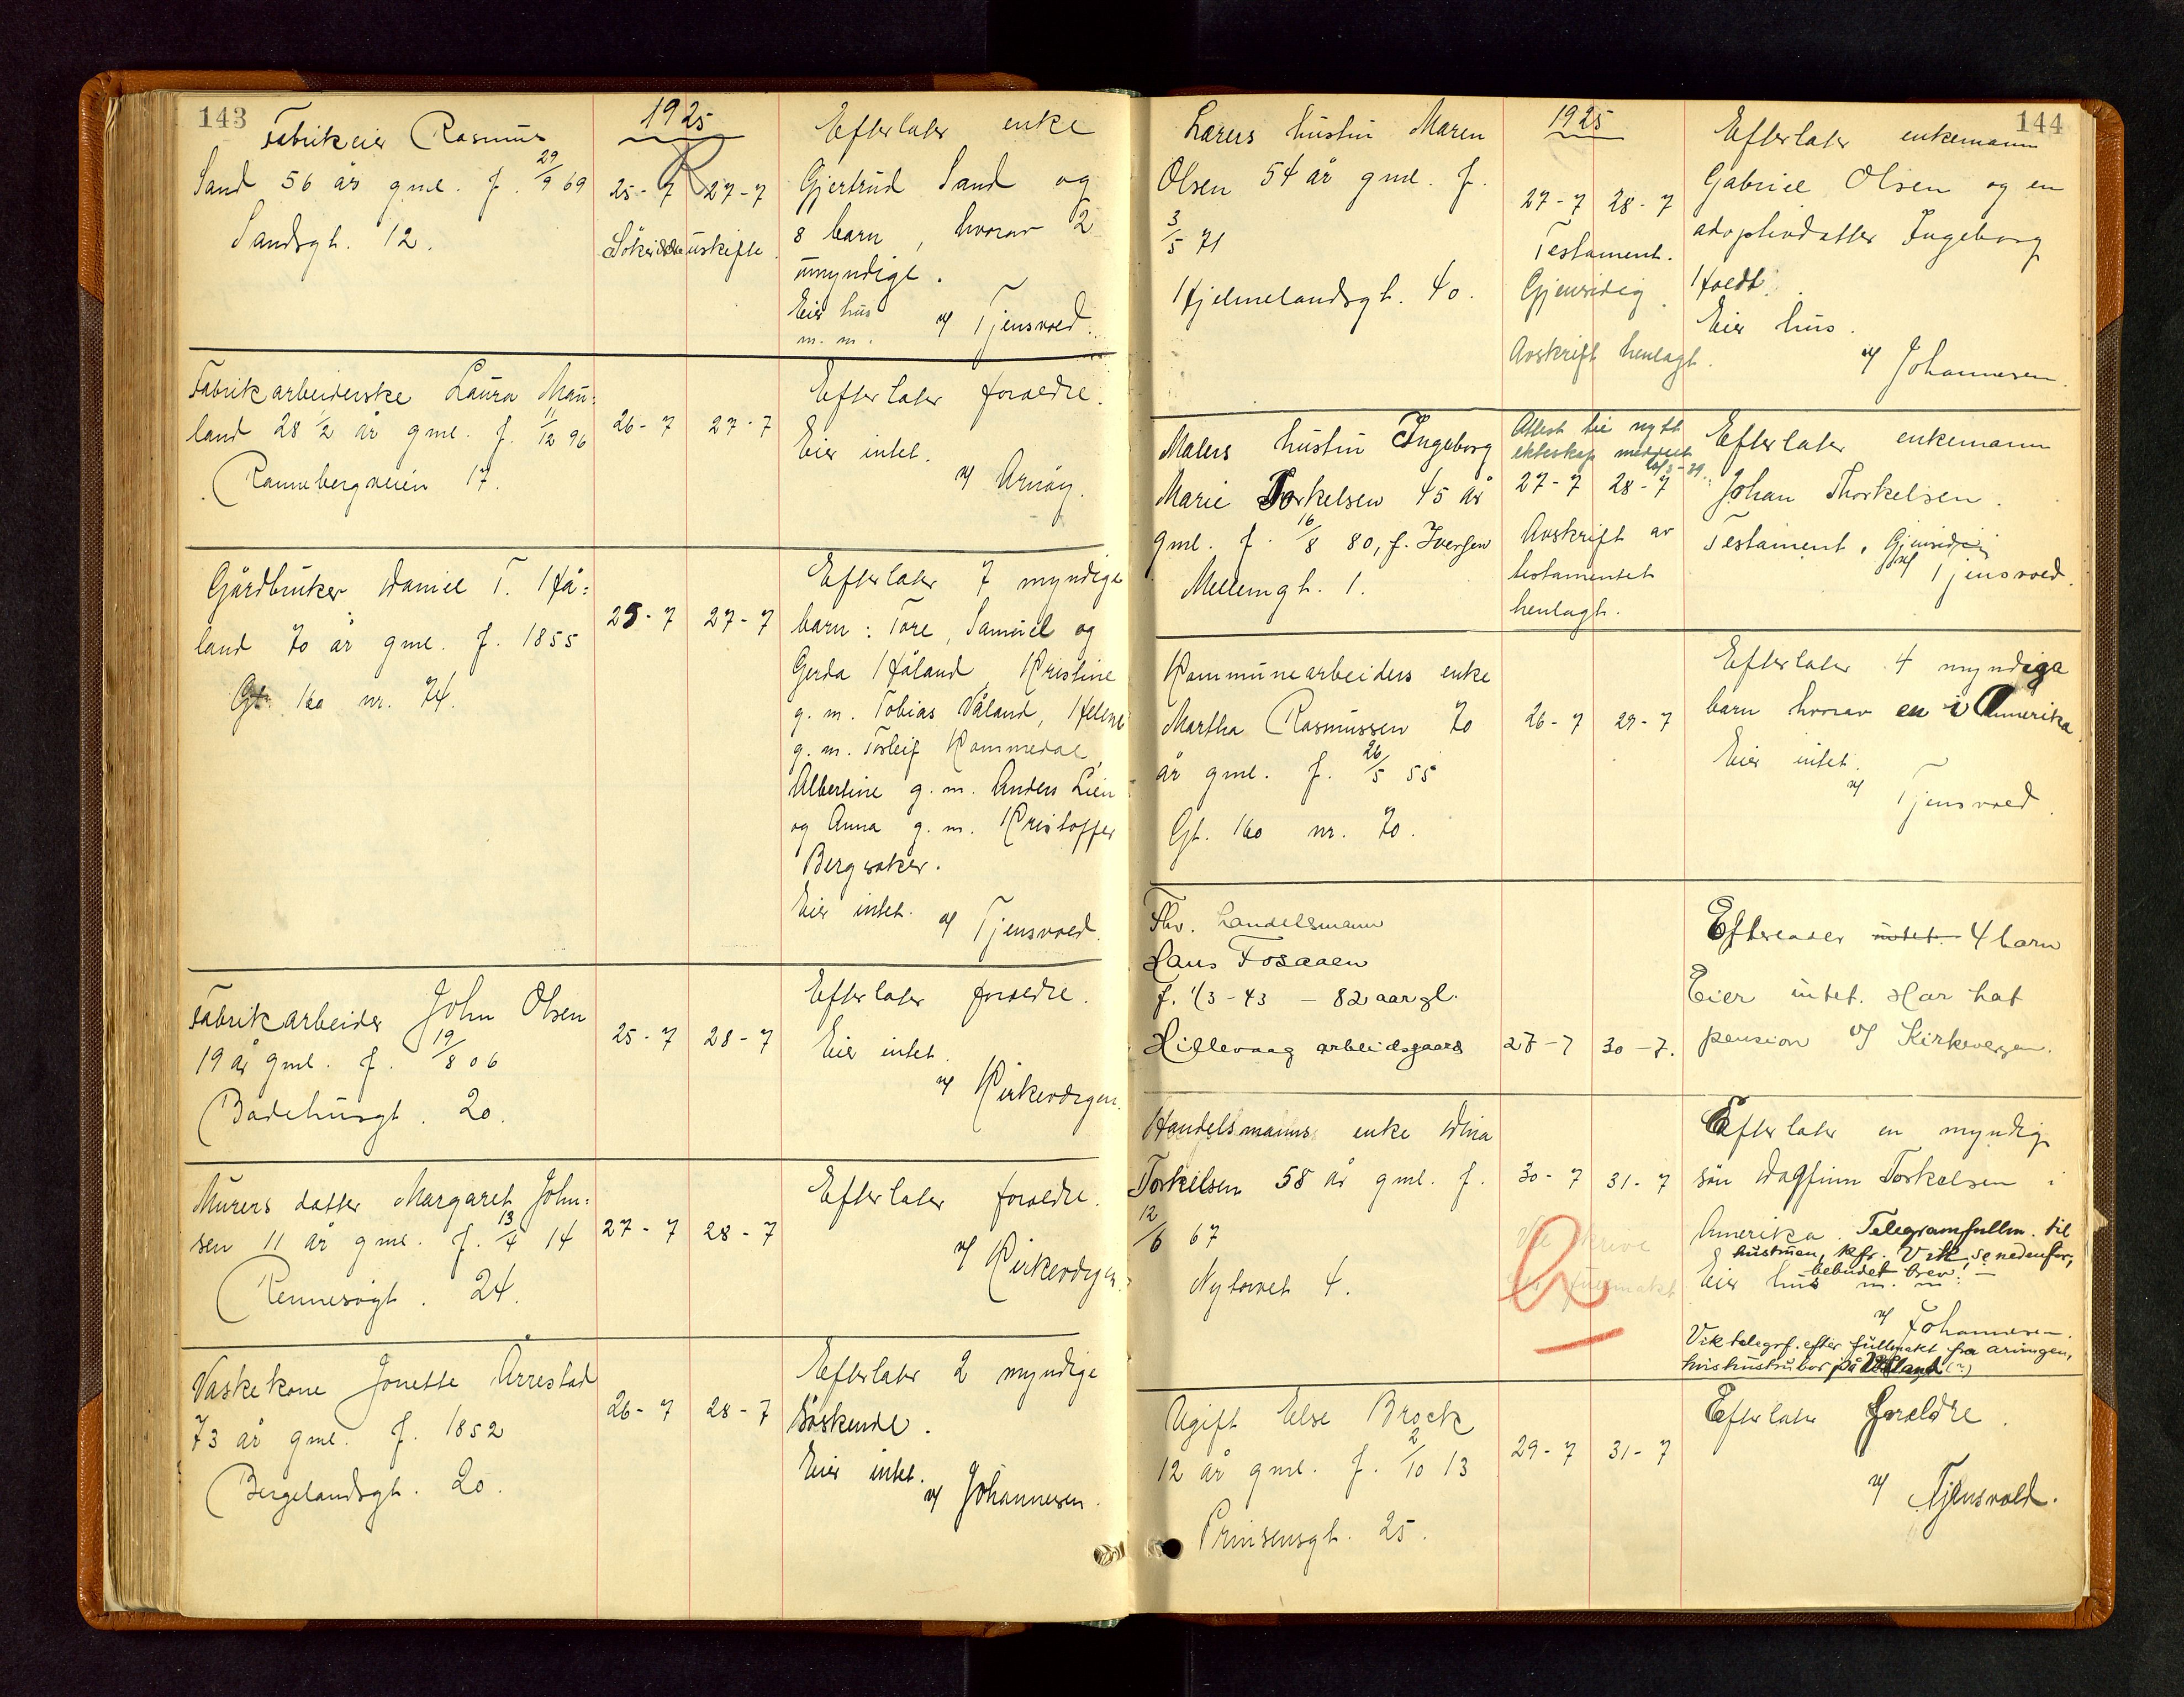 143
1925
Fabrikeier Rasmus
Sand 56 år gml. f. 29/9 69
Sandsgt. 12.
25-7 27-7
Efterlater enke
Gjertrud Sand og
8 barn, hvorav 2
umyndige.
Eier hus
m. m.
v/ Tjensvold.
Fabrikarbeiderske Laura Mau=
land 28 1/2 år gml. f. 11/12 96
Rannebergveien 17.
26-7 27-7
Efterlater foreldre.
Eier intet.
v/ Arnöy.
Gårdbruker Daniel T. Hå=
land 70 år gml. f. 1855
Gt. 160 nr. 74.
25-7 27-7
Efterlater 7 myndige
barn: Tore, Samuel og
Gerda Håland, Kristine
g. m. Tobias Våland, Helene
g. m. Torleif Hammedal,
Albertine g. m. Anders Lien
og Anna g. m. Kristoffer
Bergsaker.
Eier intet.
v/ Tjensvold.
Fabrikarbeider John Olsen
19 år gml. f. 19/8 06
Badehusgt. 20.
25-7 28-7
Efterlater foreldre.
Eier intet.
v/ Kirkevergen.
Murers datter Margaret John=
sen 11 år gml. f. 13/4 14
Rennesøgt. 24.
27-7 28-7
Efterlater foreldre.
v/ Kirkevergen.
Vaskekone Jonette Årrestad
73 år gml. f. 1852
Bergelandsgt. 20.
26-7 28-7
Efterlater 2 myndige
söskende.
Eier intet.
v/ Johannesen.
144
1925
Lærers hustru Maren
Olsen 54 år gml. f.
3/5 71
Hjelmelandsgt. 40.
27-7 28-7
Testament.
Gjensidig.
Avskrift henlagt.
Efterlater enkemann
Gabriel Olsen og en
adoptivdatter Ingeborg
Hoedt.
Eier hus.
v/ Johannesen.
Malers hustru Ingeborg
Marie Torkelsen 45 år
gml. f. 16/8 80, f. Iversen
Mellemgt. 1.
Attest til nytt
ekteskap meddelt
27-7 28-7
Avskrift av
testamentet
henlagt.
Efterlater enkemann
Johan Thorkelsen.
Testament, Gjensidig
v/ Tjensvold.
Kommunearbeiders enke
Martha Rasmussen 70
år gml. f. 26/5 55
Gt. 160 nr. 70.
26-7 29-7
Efterlater 4 myndige
barn hvorav en i Amerika
Eier intet.
v/ Tjensvold.
Fhv. Handelsmann
Hans Fosaaen
f. 1/3-43 - 82 aar gl.
Hillevaag arbeidsgaard
28-7 30-7.
Efterlader intet. 4 barn
Eier intet. Har hat
pension v/ Kirkevergen.
Handelsmanns enke Dina
Torkelsen 58 år gml. f.
12/6 67
Nytorvet 4.
30-7 31-7
Vil skrive
fullmakt
Efterlater en myndig
sön Dagfinn Torkelsen i
Amerika. Telegramfullm. til
hustruen, kfr. Vik, se nedenfor,
bebudet brev. -
Eier hus m. m.
v/ Johannesen.
Vik telegrf. efter fullmakt fra arvingen,
hvis hustru bor på
Ugift Else Brock
12 år gml. f. 2/10 13
Prinsensgt. 25.
29-7 31-7
Efterlater foreldre.
v/ Tjensvold.